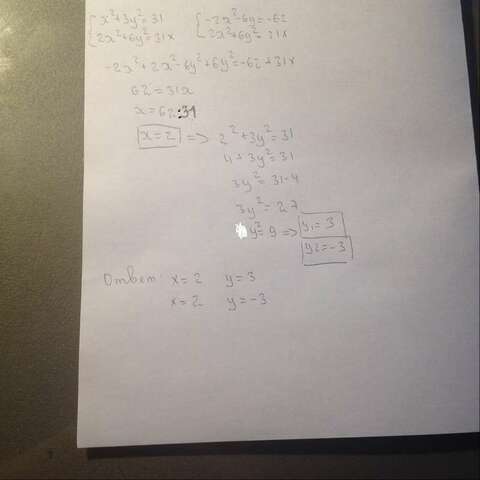 {x²+3y²=31 {-2x²-6y=-62
{2x²+6y²=31x {2x²+6y²=31x
-2x²+2x²-6y²+6y²=-62+31x
62=31x
x=62:31
x=2 => 2²+3y²=31
4+3y²=31
3y²=31-4
3y²=27
y²=9 => y₁=3
y2=-3
Ответ: x=2 y=3
x=2 y=-3